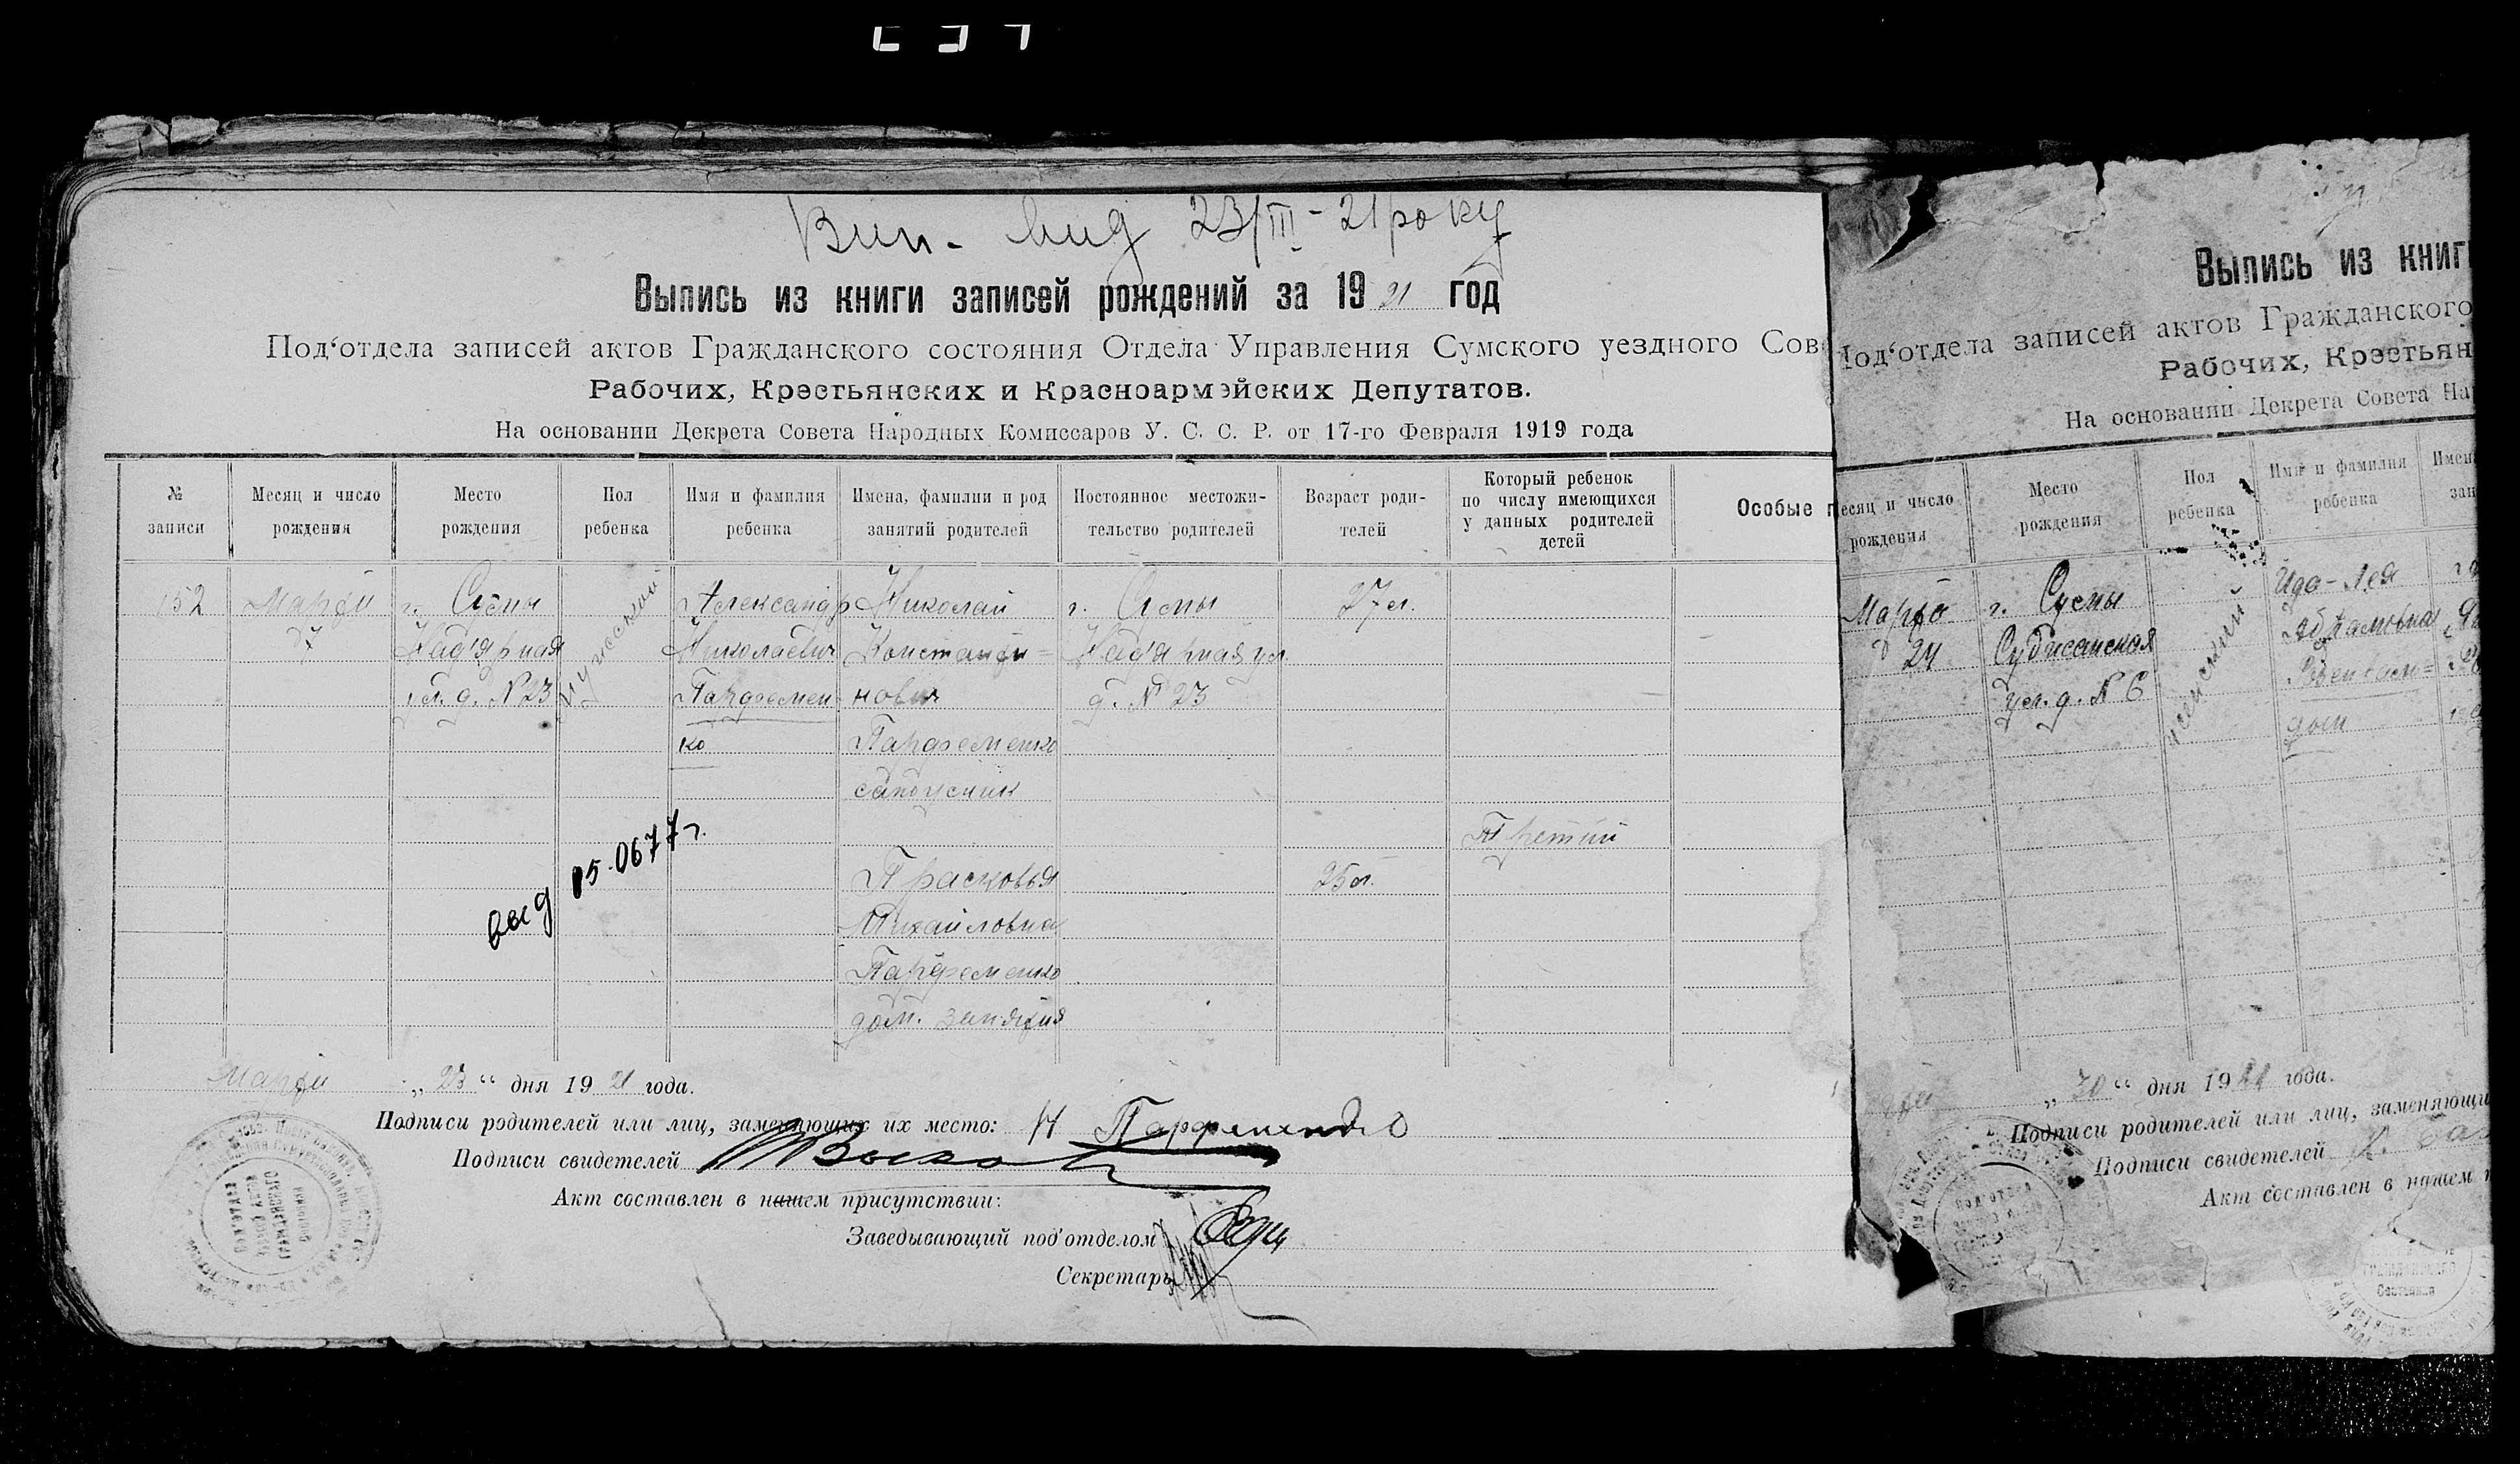 Вип. вид 23/III - 21 року
Выпись из книги записей рождений за 1921 год
Под‘отдела записей актов Гражданского состояния Отдела Управления Сумского уездного Сов
Рабочих, Крестьянских и Красноармейских Депутатов.
На основании Декрета Совета Народных Комиссаров У. С. С. Р. от 17-го Февраля 1919 года
№ записи
Месяц и число рождения
Место рождения
Пол ребенка
Имя и фамилия ребенка
Имена, фамилии и род занятий родителей
Постоянное местожительство родителей
Возраст родителей
Который ребенок по числу имеющихся у данных родителей детей
Особые
152
Марта
7
г. Сумы
ул. д. № 23
мужеский
Александр
Николаевич
Парфемен
ко
Николай
Константи=
нович
Парфеменко
сапожник
Прасковья
Михайловна
Парфеменко
дом. занятия
г. Сумы
д. № 23
27 л.
25 л.
Третий
выд 05.06 77 г.
Марта „ 23 “ дня 1921 года.
Подписи родителей или лиц, заменяющих их место: Н Парфеменко
Подписи свидетелей
Акт составлен в нашем присутствии:
Заведывающий под‘отделом
Секретарь
Выпись из книг
Под‘отдела записей актов Гражданского
Рабочих, Крестьян
На основании Декрета Совета На
есяц и число рождения
Место рождения
Пол ребенка
Имя и фамилия ребенка
Имен
зан
Марта
24
г. Сумы
ул. д. № 6
женский
Ида-Лея
Абрамовна
„ 30 “ дня 1921 года.
Подписи родителей или лиц, заменяющи
Подписи свидетелей
Акт составлен в нашем п